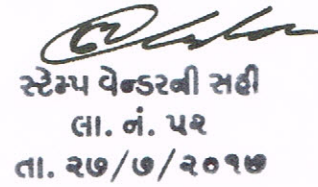 સ્ટેમ્પ વેન્ડરની સહી
લા. નં. ૫૨
તા. ૨૭/૭/૨૦૧૭